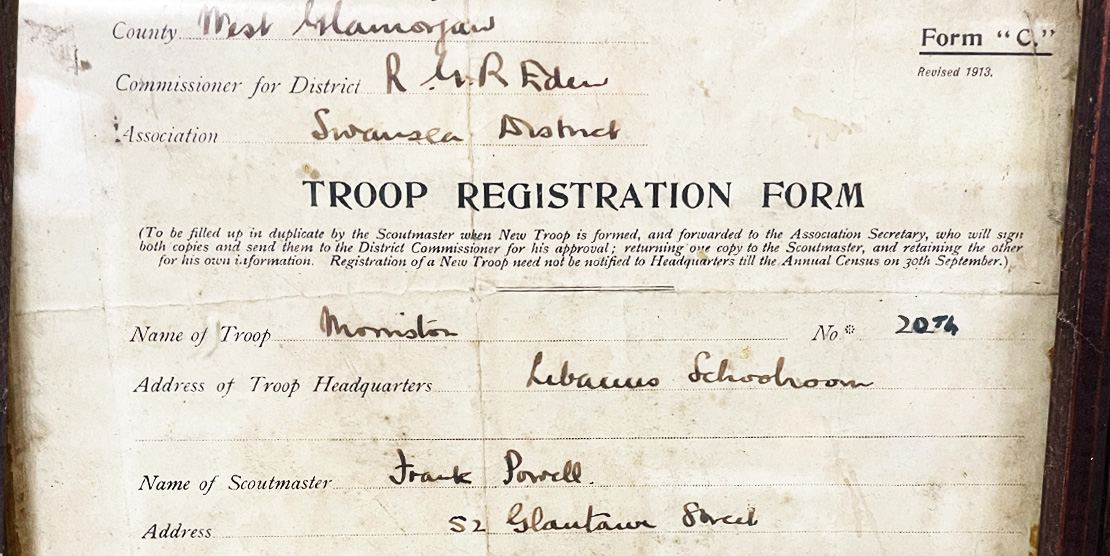 County West Glamorgan
Form "C."
Commissioner for District R G. R Eden
Revised 1913.
Association Swansea District
TROOP REGISTRATION FORM
(To be filled up in duplicate by the Scoutmaster when New Troop is formed, and forwarded to the Association Secretary, who will sign
both copies and send them to the District Commissioner for his approval; returning one copy to the Scoutmaster, and retaining the other
for his own information. Registration of a New Troop need not be notified to Headquarters till the Annual Census on 30th September.)
Name of Troop Morriston No* 20Th
Address of Troop Headquarters Libanus Schoolroom
Name of Scoutmaster Frank Powell.
Address 52 Glantawe Street